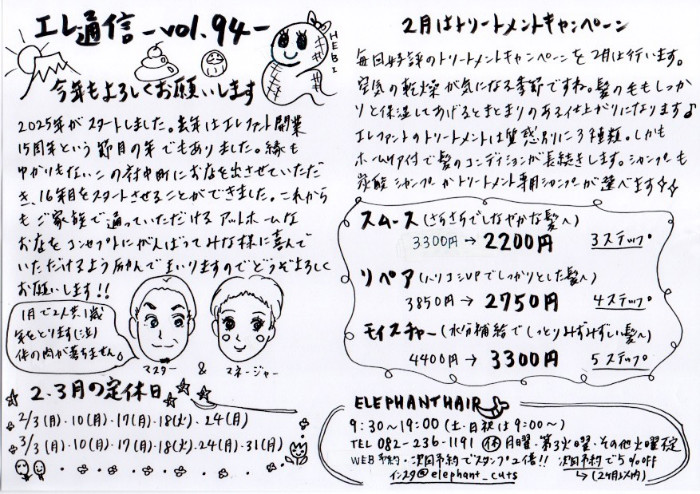 エレ通信 -vol.94-
HEBI
今年もよろしくお願いします
2025年がスタートしました。去年はエレファント開業
15周年という節目の年でもありました。縁も
ゆかりもないこの府中町にお店を出させていただ
き、16年目をスタートさせることができました。これから
もご家族で通っていただけるアットホームな
お店をコンセプトにがんばってみな様に喜んで
いただけるよう励んでまいりますのでどうぞよろしく
お願いします!!
1月で2人共1歳
年をとります(泣)
体の肉が落ちません。
マスター & マネージャー
2.3月の定休日
2/3(月)・10(月)・17(月)・18(火)・24(月)
3/3(月)・10(月)・17(月)・18(火)・24(月)・31(月)
2月はトリートメントキャンペーン
毎回好評のトリートメントキャンペーンを2月は行います。
空気の乾燥が気になる季節ですね。髪の毛もしっか
りと保湿してあげるとまとまりのある仕上がりになります♪
エレファントのトリートメントは質感別に3種類。しかも
ホームケア付で髪のコンディションが長続きします。シャンプーも
炭酸シャンプーかトリートメント専用シャンプーが選べます☆☆
スムース(さらさらでしなやかな髪へ)
3300円→2200円 3ステップ
リペア(ハリコシUPでしっかりとした髪へ)
3850円→2750円 4ステップ
モイスチャー(水分補給でしっとりみずみずしい髪へ)
4400円→3300円 5ステップ
ELEPHANT HAIR
9:30~19:00(土・日祝は9:00~)
TEL 082-236-1191 休 月曜・第3火曜・その他火曜不定
WEB予約・次回予約でスタンプ2倍!! 次回予約で5%OFF
インスタ@elephant_cuts →(2ヶ月以内)